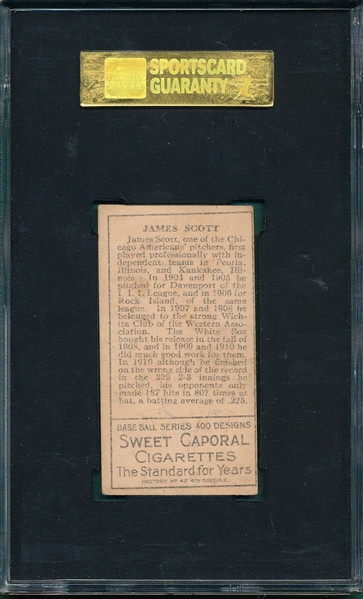 SPORTSCARD
GUARANTY
JAMES SCOTT
James Scott, one of the Chi-
cago Americans' pitchers, first
played professionally with in-
dependent teams in Peoria,
Illinois, and Kankakee, Illi-
nois. In 1904 and 1905 he
pitched for Davenport of the
I. I. I. League, and in 1906 for
Rock Island, of the same
league. In 1907 and 1908 he
belonged to the strong Wich-
ita Club of the Western Asso-
ciation. The White Sox
bought his release in the fall of
1908, and in 1909 and 1910 he
did much good work for them.
In 1910 although he finished
on the wrong side of the record
in the 229 2-3 innings he
pitched, his opponents only
made 187 hits in 807 times at
bat, a batting average of .225.
BASE BALL SERIES 400 DESIGNS
SWEET CAPORAL
CIGARETTES
The Standard for Years
FACTORY No 42 4TH DIST. N.C.